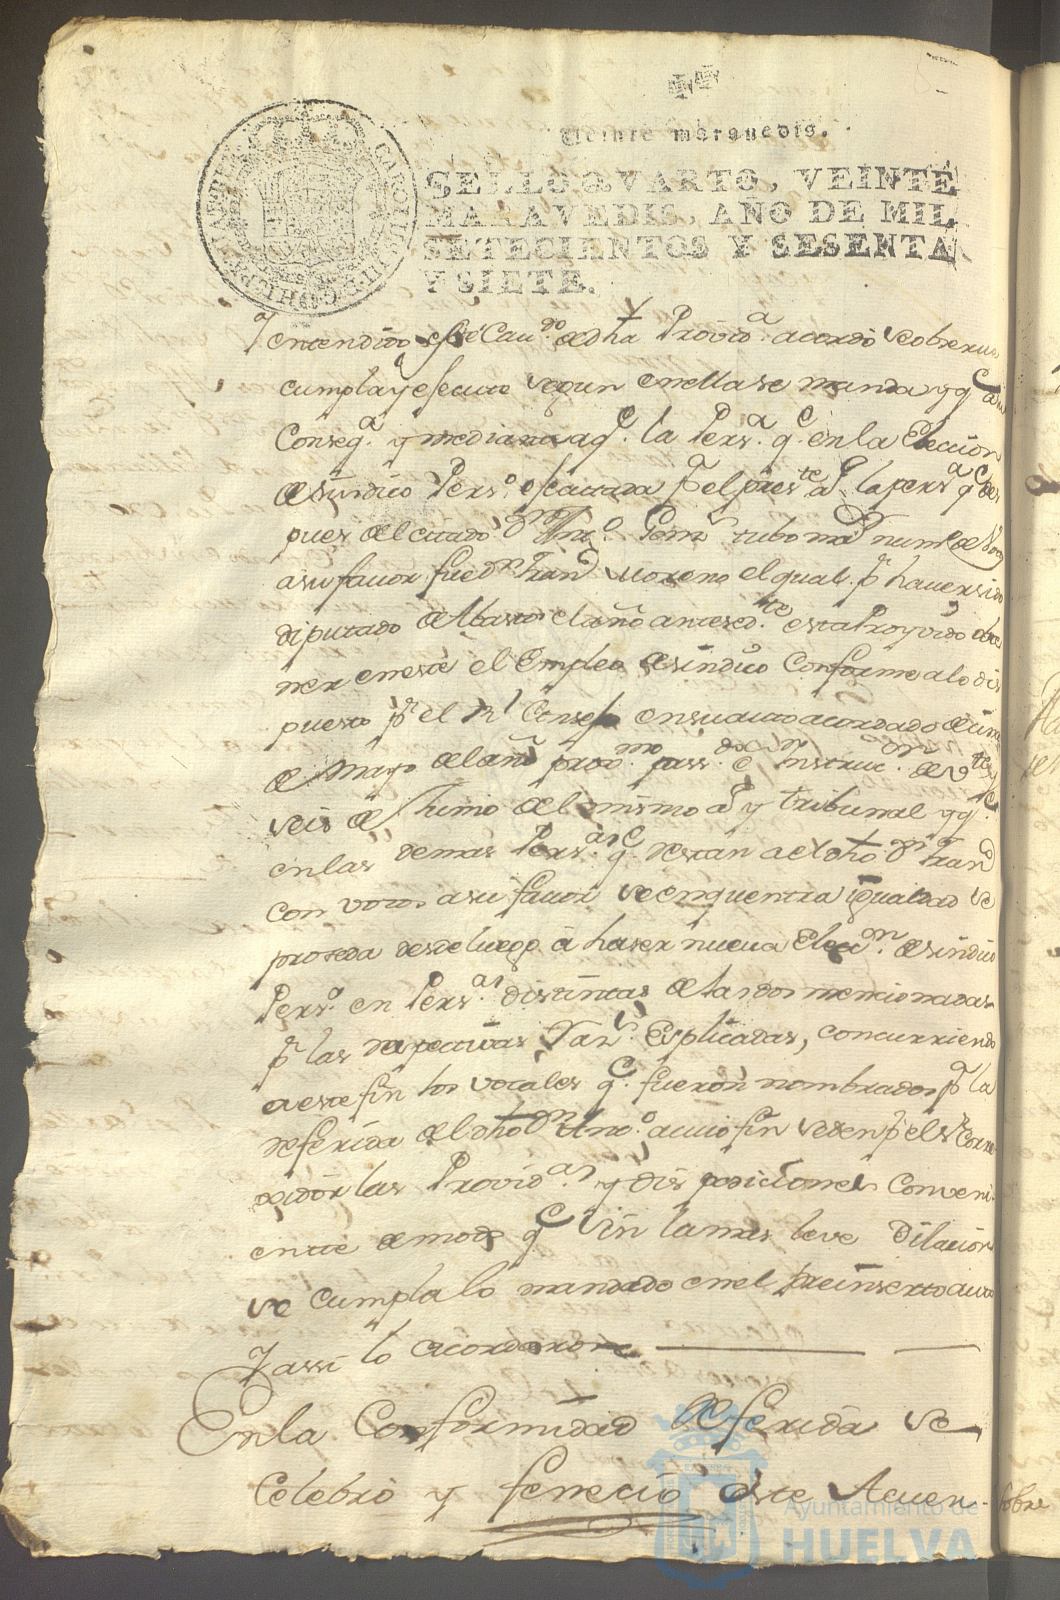 Veinte maravedis.
SELLO QVARTO, VEINTE
MARAVEDIS, AÑO DE MIL
SETECIENTOS Y SESENTA
Y SIETE.
Y entendido este Cau.do de dha Provid.a acordó se obserue
cumpla y efecute segun en ella se manda y q.e
Conseq.a y mediante a q.e la Pers.a q.e en la Eleccion
de sindico Pers.o efectuada p.r el pres.te la pers.a q.e des
pues del citado D.n Tubo mas num.o de Votos
a su favor fue D.n Fran.co Moreno el qual p.r haver sido
diputado de Abastos el año anteced.te esta Proyvido obte
ner en este el Empleo de sindico Conforme a lo dis
puesto p.r el R.l Consejo en su auto acordado de cinco
de Mayo del año prox.mo pass.do e Instruc.on de v.te y
seis de Junio del mismo y tribunal y q.e
en las demas Pers.as q.e restan a el dho D.n Fran.co
con votos a su favor se enquentra igualdad se
proseda desde luego á haser nueva Elecc.on de sindico
Pers.o en Pers.as distintas de las dos mencionadas
p.r las respectivas explicadas, concurriendo
a este fin los vocales q.e fueron nombrados p.a la
referida del dho D.n a cuio fin se den p.r el s.r Corre
gidor las Provid.as y disposiciones Conveni
ente de modo q.e sin la mas leve Dilacion
se cumpla lo mandado en el preinserto auto
Y assi lo acordaron
En la Conformidad Referida se
Celebró y fenecio este Acuer-
sobre
Ayuntamiento de
HUELVA